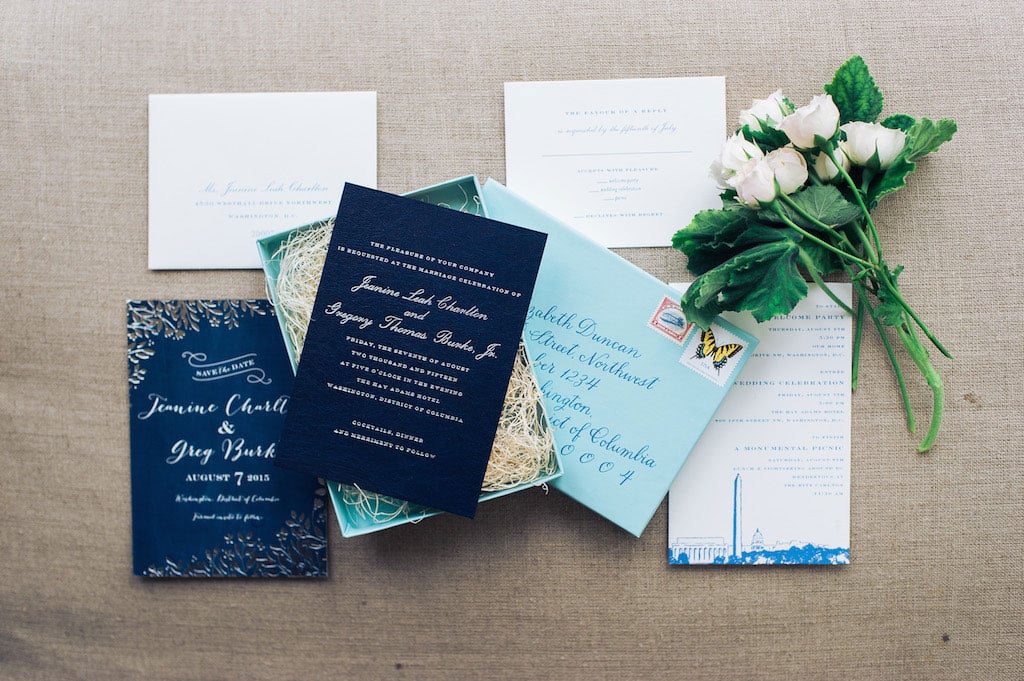 Ms. Jeanine Leah Charlton
WASHINGTON, D.C.
THE FAVOUR OF A REPLY
is requested by the fifteenth of July
ACCEPTS WITH PLEASURE
welcome party
wedding celebration
picnic
DECLINES WITH REGRET
SAVE the DATE
Jeanine Charlt
&
Greg Burk
AUGUST 7 2015
Washington, District of Columbia
Formal invite to follow
THE PLEASURE OF YOUR COMPANY
IS REQUESTED AT THE MARRIAGE CELEBRATION OF
Jeanine Leah Charlton
and
Gregory Thomas Burke, Jr.
FRIDAY, THE SEVENTH OF AUGUST
TWO THOUSAND AND FIFTEEN
AT FIVE O'CLOCK IN THE EVENING
THE HAY ADAMS HOTEL
WASHINGTON, DISTRICT OF COLUMBIA
COCKTAILS, DINNER
AND MERRIMENT TO FOLLOW
zabeth Duncan
Street, Northwest
mber 1234
ington,
ct of Columbia
0 0 0 4
USA
ELCOME PARTY
THURSDAY, AUGUST 6TH
OUR HOME
WASHINGTON, D.C.
WEDDING CELEBRATION
FRIDAY, AUGUST 7TH
THE HAY ADAMS HOTEL
WASHINGTON, D.C.
TO FINISH
A MONUMENTAL PICNIC
SATURDAY, AUGUST 8TH
LUNCH & SIGHTSEEING ABOARD DC
RENDEZVOUS AT
THE RITZ CARLTON